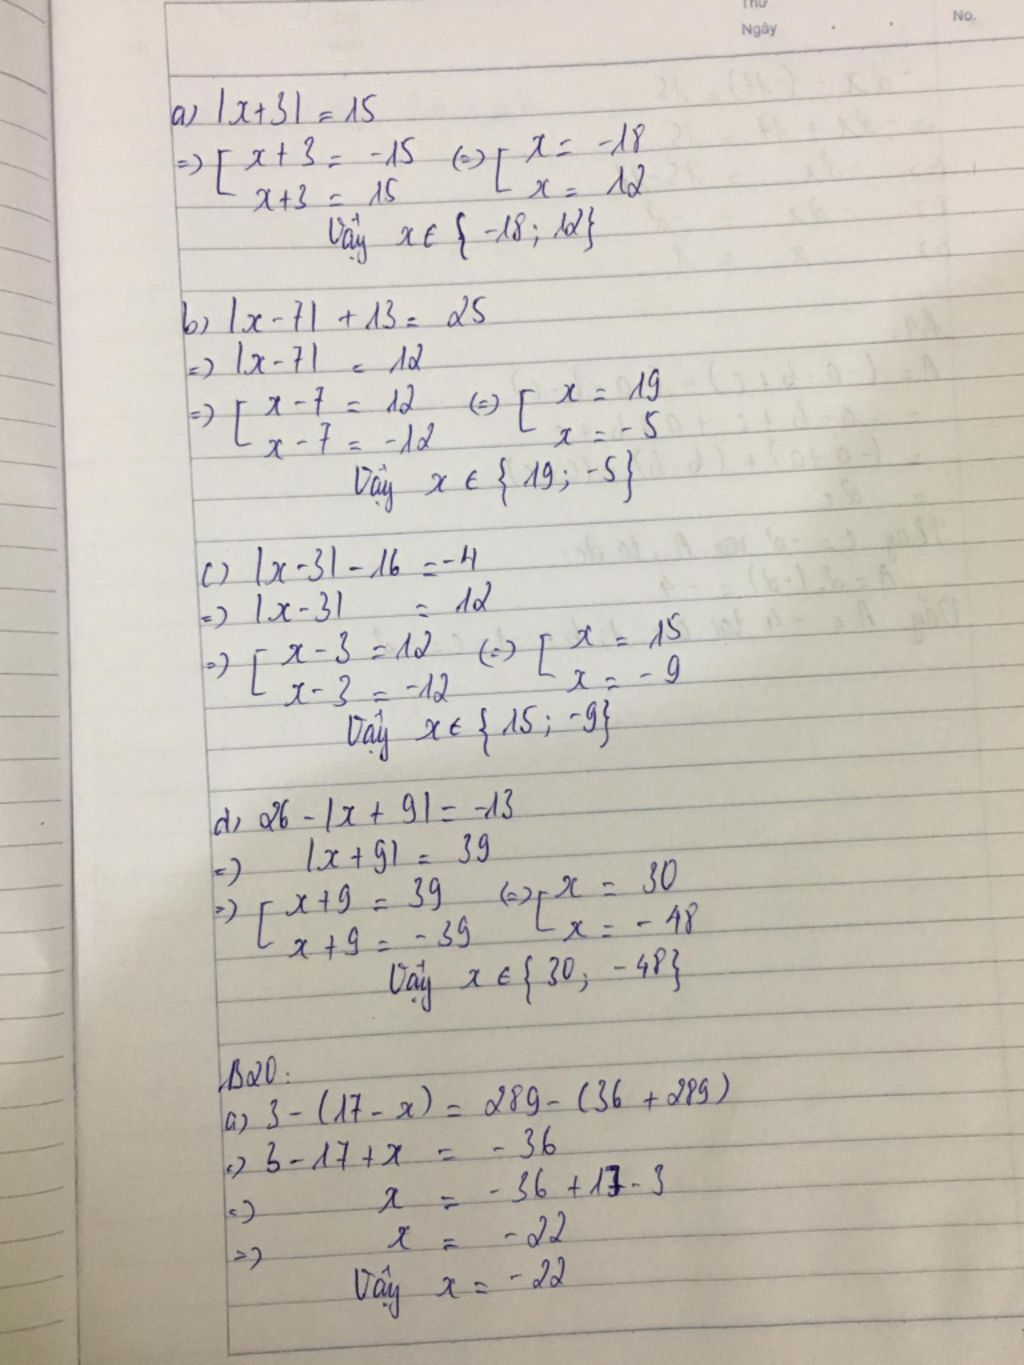 Thứ
Ngày . . No.
a) |x+3| = 15
=> [ x+3 = -15 (=) [ x = -18
x+3 = 15 x = 12
Vậy x ∈ { -18; 12}
b) |x-7| + 13 = 25
=) |x-7| = 12
=) [ x-7 = 12 (=) [ x = 19
x-7 = -12 x = -5
Vậy x ∈ { 19; -5}
c) |x-3| - 16 = -4
=) |x-3| = 12
=) [ x-3 = 12 (=) [ x = 15
x-3 = -12 x = -9
Vậy x ∈ { 15; -9}
d) 26 - |x + 9| = -13
=) |x+9| = 39
=) [ x+9 = 39 (=) [ x = 30
x+9 = -39 x = -48
Vậy x ∈ { 30; -48}
B20:
a) 3 - (17 - x) = 289 - (36 + 289)
=) 3 - 17 + x = -36
=) x = -36 + 17 - 3
=) x = -22
Vậy x = -22